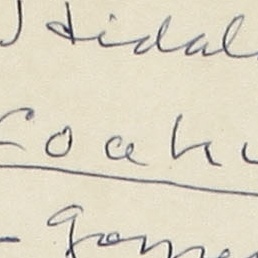 Hidal
Coahu
- Gome